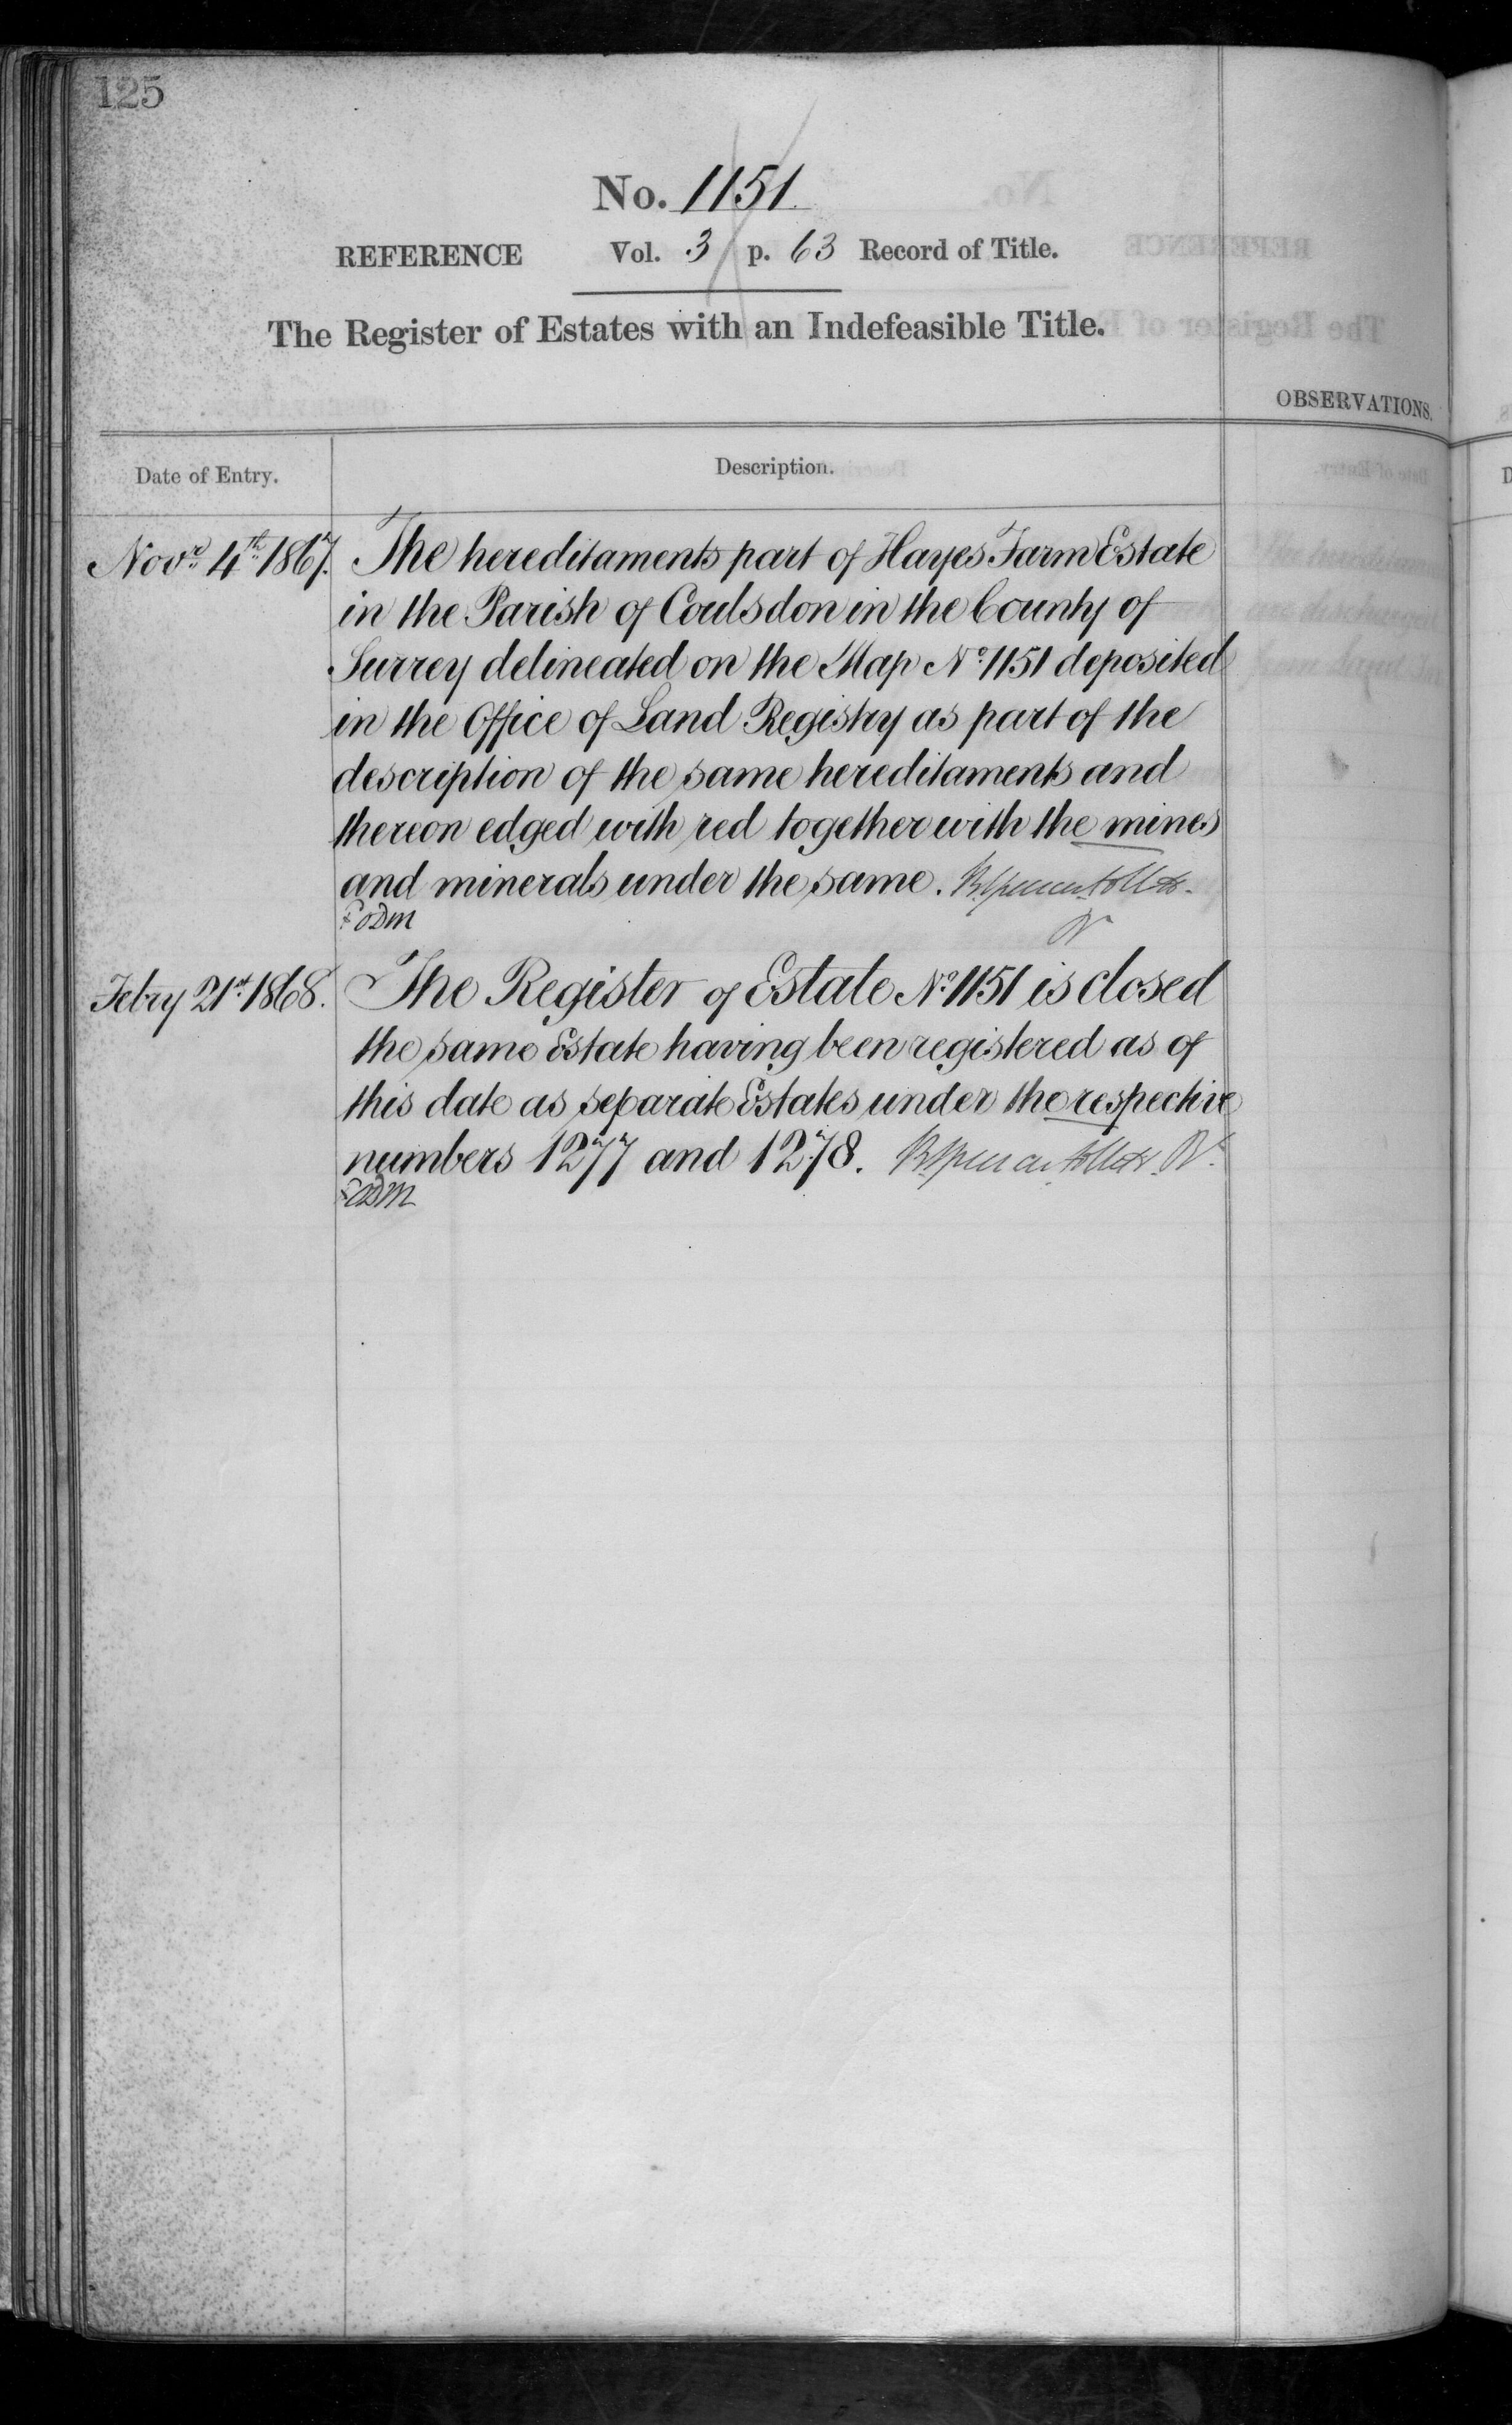 125
No. 1151
REFERENCE Vol. 3 p. 63 Record of Title.
The Register of Estates with an Indefeasible Title.
OBSERVATIONS.
Date of Entry. Description.
Novr. 4th 1867. The hereditaments part of Hayes Farm Estate
in the Parish of Coulsdon in the County of
Surrey delineated on the Map No. 1151 deposited
in the Office of Land Registry as part of the
description of the same hereditaments and
thereon edged with red together with the mines
and minerals under the same.
Febry 21st 1868. The Register of Estate No. 1151 is closed
the same Estate having been registered as of
this date as separate Estates under the respective
numbers 1277 and 1278.